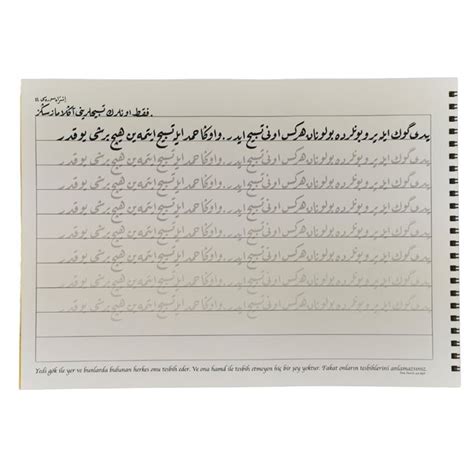 فقط اونلرك تسبيحلرينى آڭلامازسڭز.
يدى گوك ايله ير و بونلرده بولونان هركس اونى تسبيح ايدر. و اوڭا حمد ايله تسبيح ايتمه ين هيچ برشى يوقدر
يدى گوك ايله ير و بونلرده بولونان هركس اونى تسبيح ايدر. و اوڭا حمد ايله تسبيح ايتمه ين هيچ برشى يوقدر
يدى گوك ايله ير و بونلرده بولونان هركس اونى تسبيح ايدر. و اوڭا حمد ايله تسبيح ايتمه ين هيچ برشى يوقدر
يدى گوك ايله ير و بونلرده بولونان هركس اونى تسبيح ايدر. و اوڭا حمد ايله تسبيح ايتمه ين هيچ برشى يوقدر
يدى گوك ايله ير و بونلرده بولونان هركس اونى تسبيح ايدر. و اوڭا حمد ايله تسبيح ايتمه ين هيچ برشى يوقدر
يدى گوك ايله ير و بونلرده بولونان هركس اونى تسبيح ايدر. و اوڭا حمد ايله تسبيح ايتمه ين هيچ برشى يوقدر
يدى گوك ايله ير و بونلرده بولونان هركس اونى تسبيح ايدر. و اوڭا حمد ايله تسبيح ايتمه ين هيچ برشى يوقدر
يدى گوك ايله ير و بونلرده بولونان هركس اونى تسبيح ايدر. و اوڭا حمد ايله تسبيح ايتمه ين هيچ برشى يوقدر
Yedi gök ile yer ve bunlarda bulunan herkes onu tesbih eder. Ve ona hamd ile tesbih etmeyen hiç bir şey yoktur. Fakat onların tesbihlerini anlamazsınız.